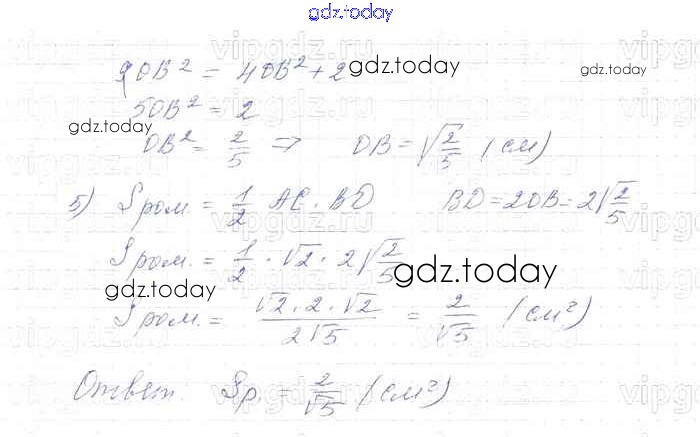 gdz.today
9OB² = 4OB² + 2
gdz.today
gdz.today
5OB² = 2
gdz.today
OB² = 2/5 ⇒ OB = √2/5 (см)
5) Sром = 1/2 AC · BD BD = 2OB = 2√2/5
Sром. = 1/2 · √2 · 2√2/5
gdz.today
gdz.today
Sром. = √2 · 2 · √2 / 2√5 = 2/√5 (см²)
Ответ. Sр. = 2/√5 (см²)